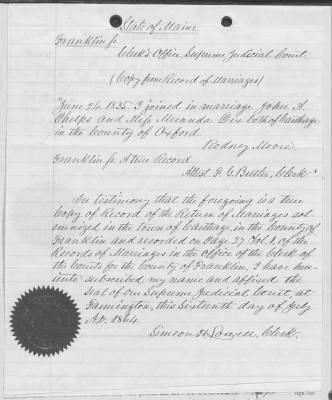 State of Maine.
Franklin ss.
Clerk's Office Supreme Judicial Court.
(Copy from Record of Marriages)
"June 26. 1835. I joined in marriage John A.
Phelps and Miss Miranda Dix both of Carthage
in the County of Oxford.
Rodney Moore.
Franklin ss A true Record
Attest. Butler, Clerk"
In testimony that the foregoing is a true
Copy of Record of the Return of Marriages sol-
emnized in the town of Carthage, in the County of
Franklin and recorded on Page 27 Vol 1, of the
Records of Marriages in the Office of the Clerk of
the Courts for the County of Franklin, I have here-
unto subscribed my name and affixed the
Seal of our Supreme Judicial Court, at
Farmington, this Sixteenth day of July
A.D. 1864.
Simeon H. Lowell, Clerk.